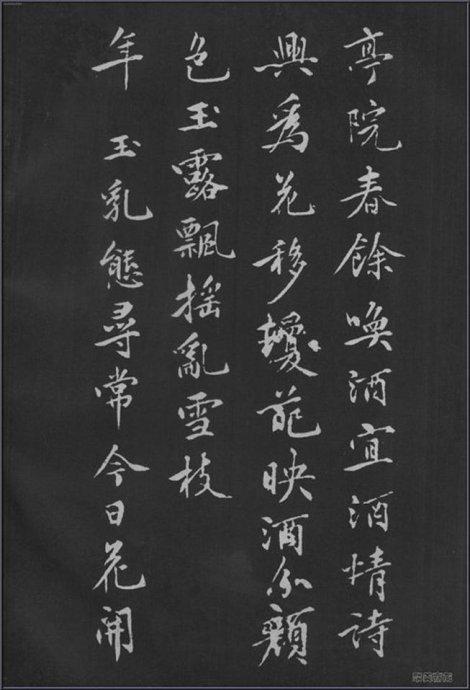 亭院春餘喚酒宜酒情詩
興爲花移葩映酒分顏
色玉露飄摇亂雪枝
年玉乳態尋常今日花開